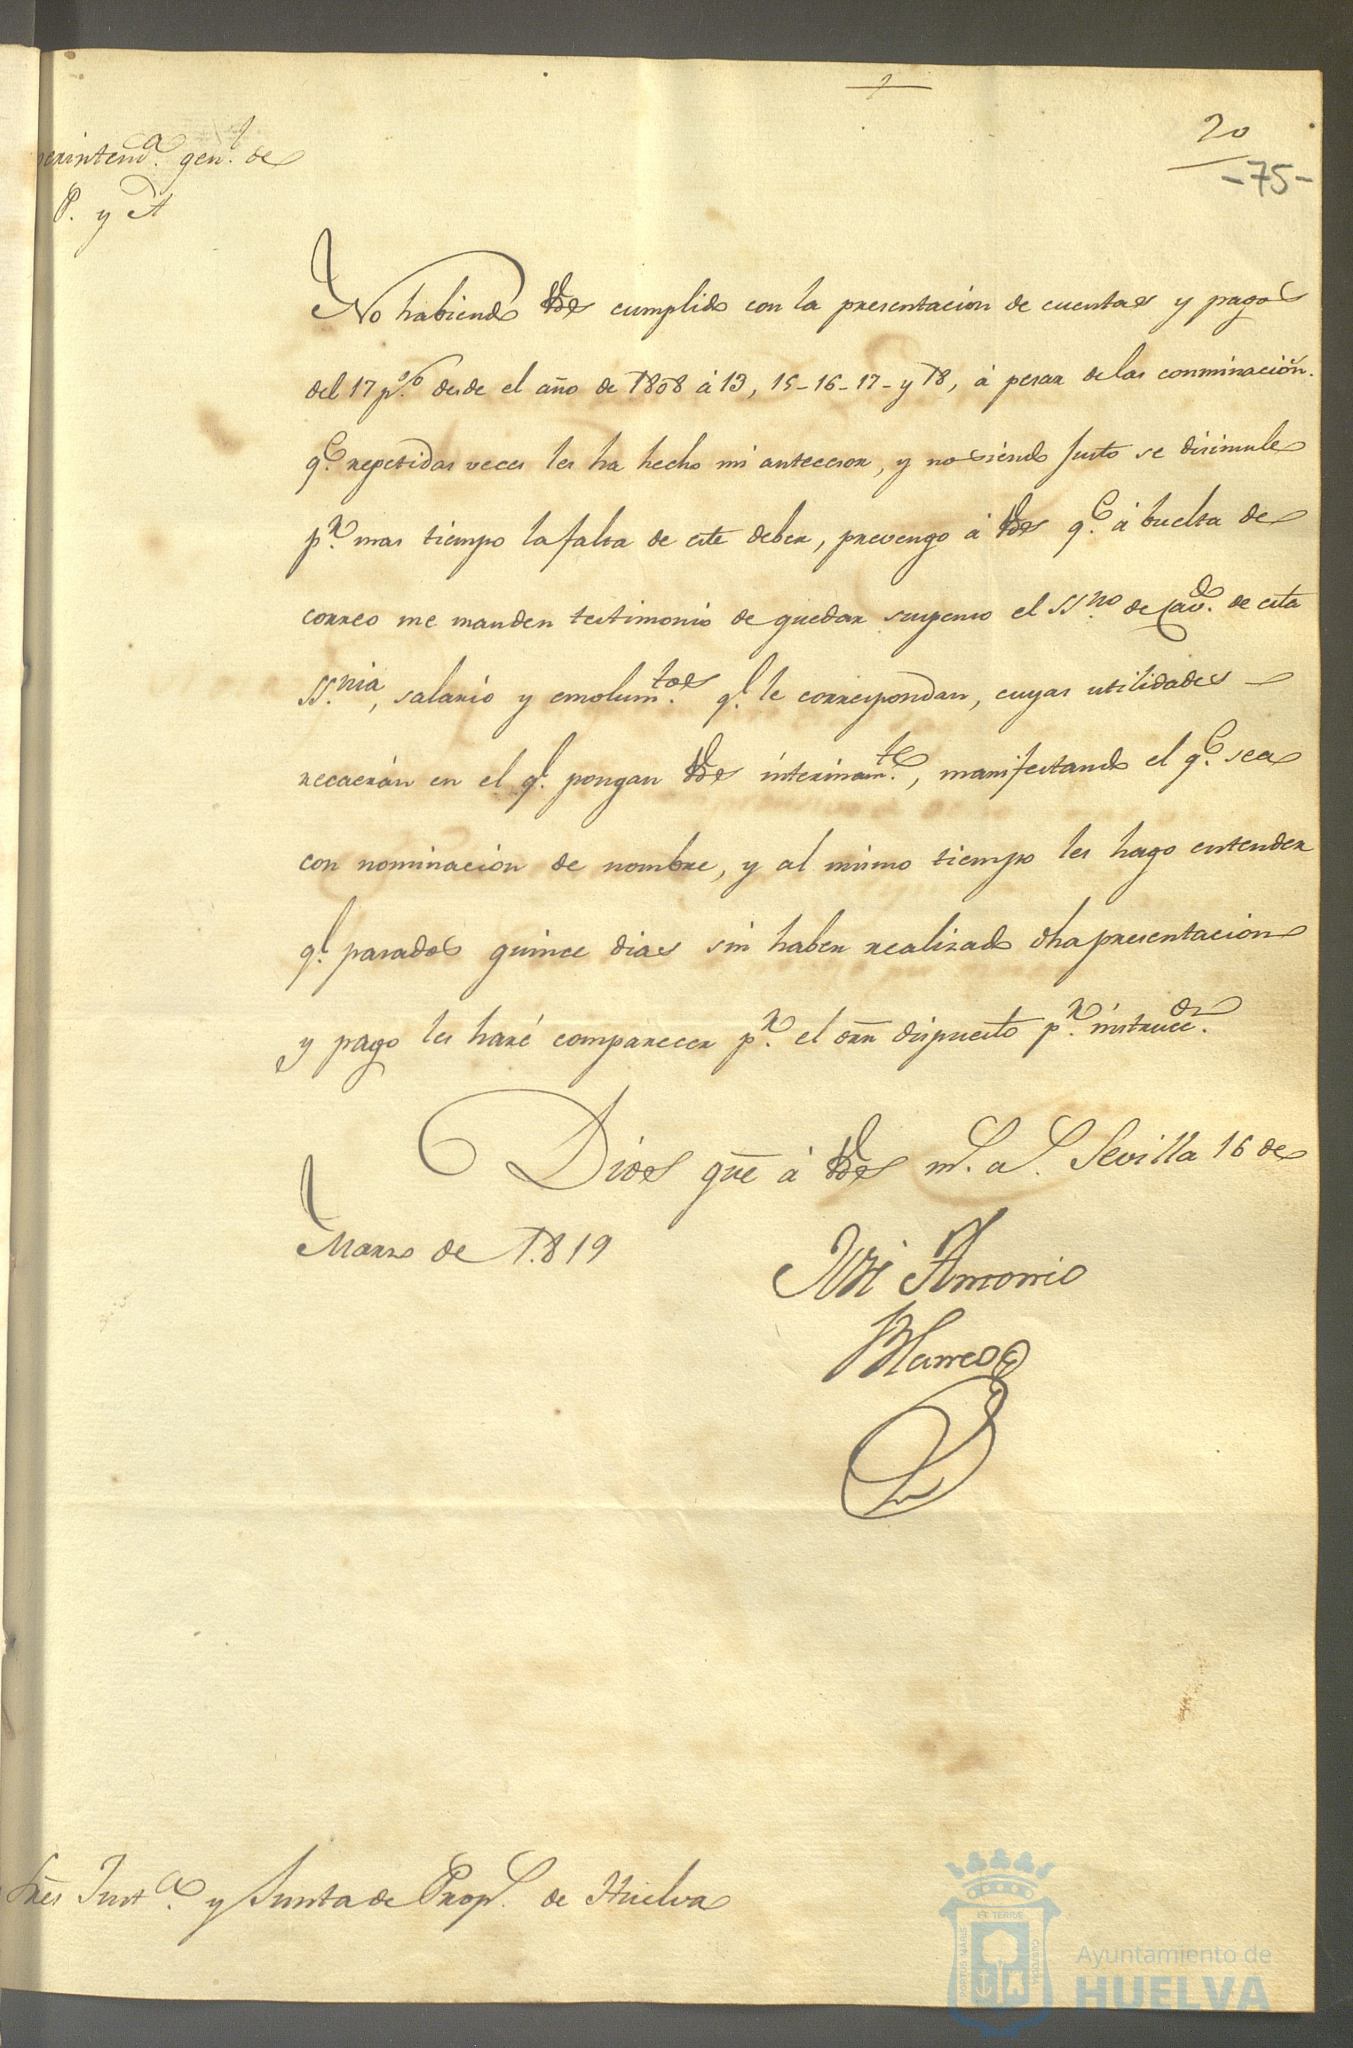 20
-75-
erintend.a gen.l de
P. y A
No habiendo Vdes cumplido con la presentacion de cuentas y pagos
del 17 p.% desde el año de 1808 á 13, 15-16-17- y 18, á pesar de las conminacion.
q.e repetidas veces les ha hecho mi antecesor, y no siendo justo se disimule
p.r mas tiempo la falta de este deber, prevengo á Vdes q.e á buelta de
correo me manden testimonio de quedar suspenso el SS.no de Cav.do de esta
SS.nia, salario y emolum.tos q.e le correspondan, cuyas utilidades
recaerán en el q.e pongan Vdes interinam.te, manifestando el q.e sea
con nominacion de nombre, y al mismo tiempo les hago entender
q.e pasados quince dias sin haber realizado dha presentacion
y pago les haré comparecer p.r el orn dispuesto p.r instrucc.on
Dios gue á Vdes m.s a.s Sevilla 16 de
Marzo de 1819
José Antonio
Blanco
Sres Just.a y Junta de Prop.s de Huelva
PORTUS MARIS
ET TERRAE
CUSTODIA
Ayuntamiento de
HUELVA